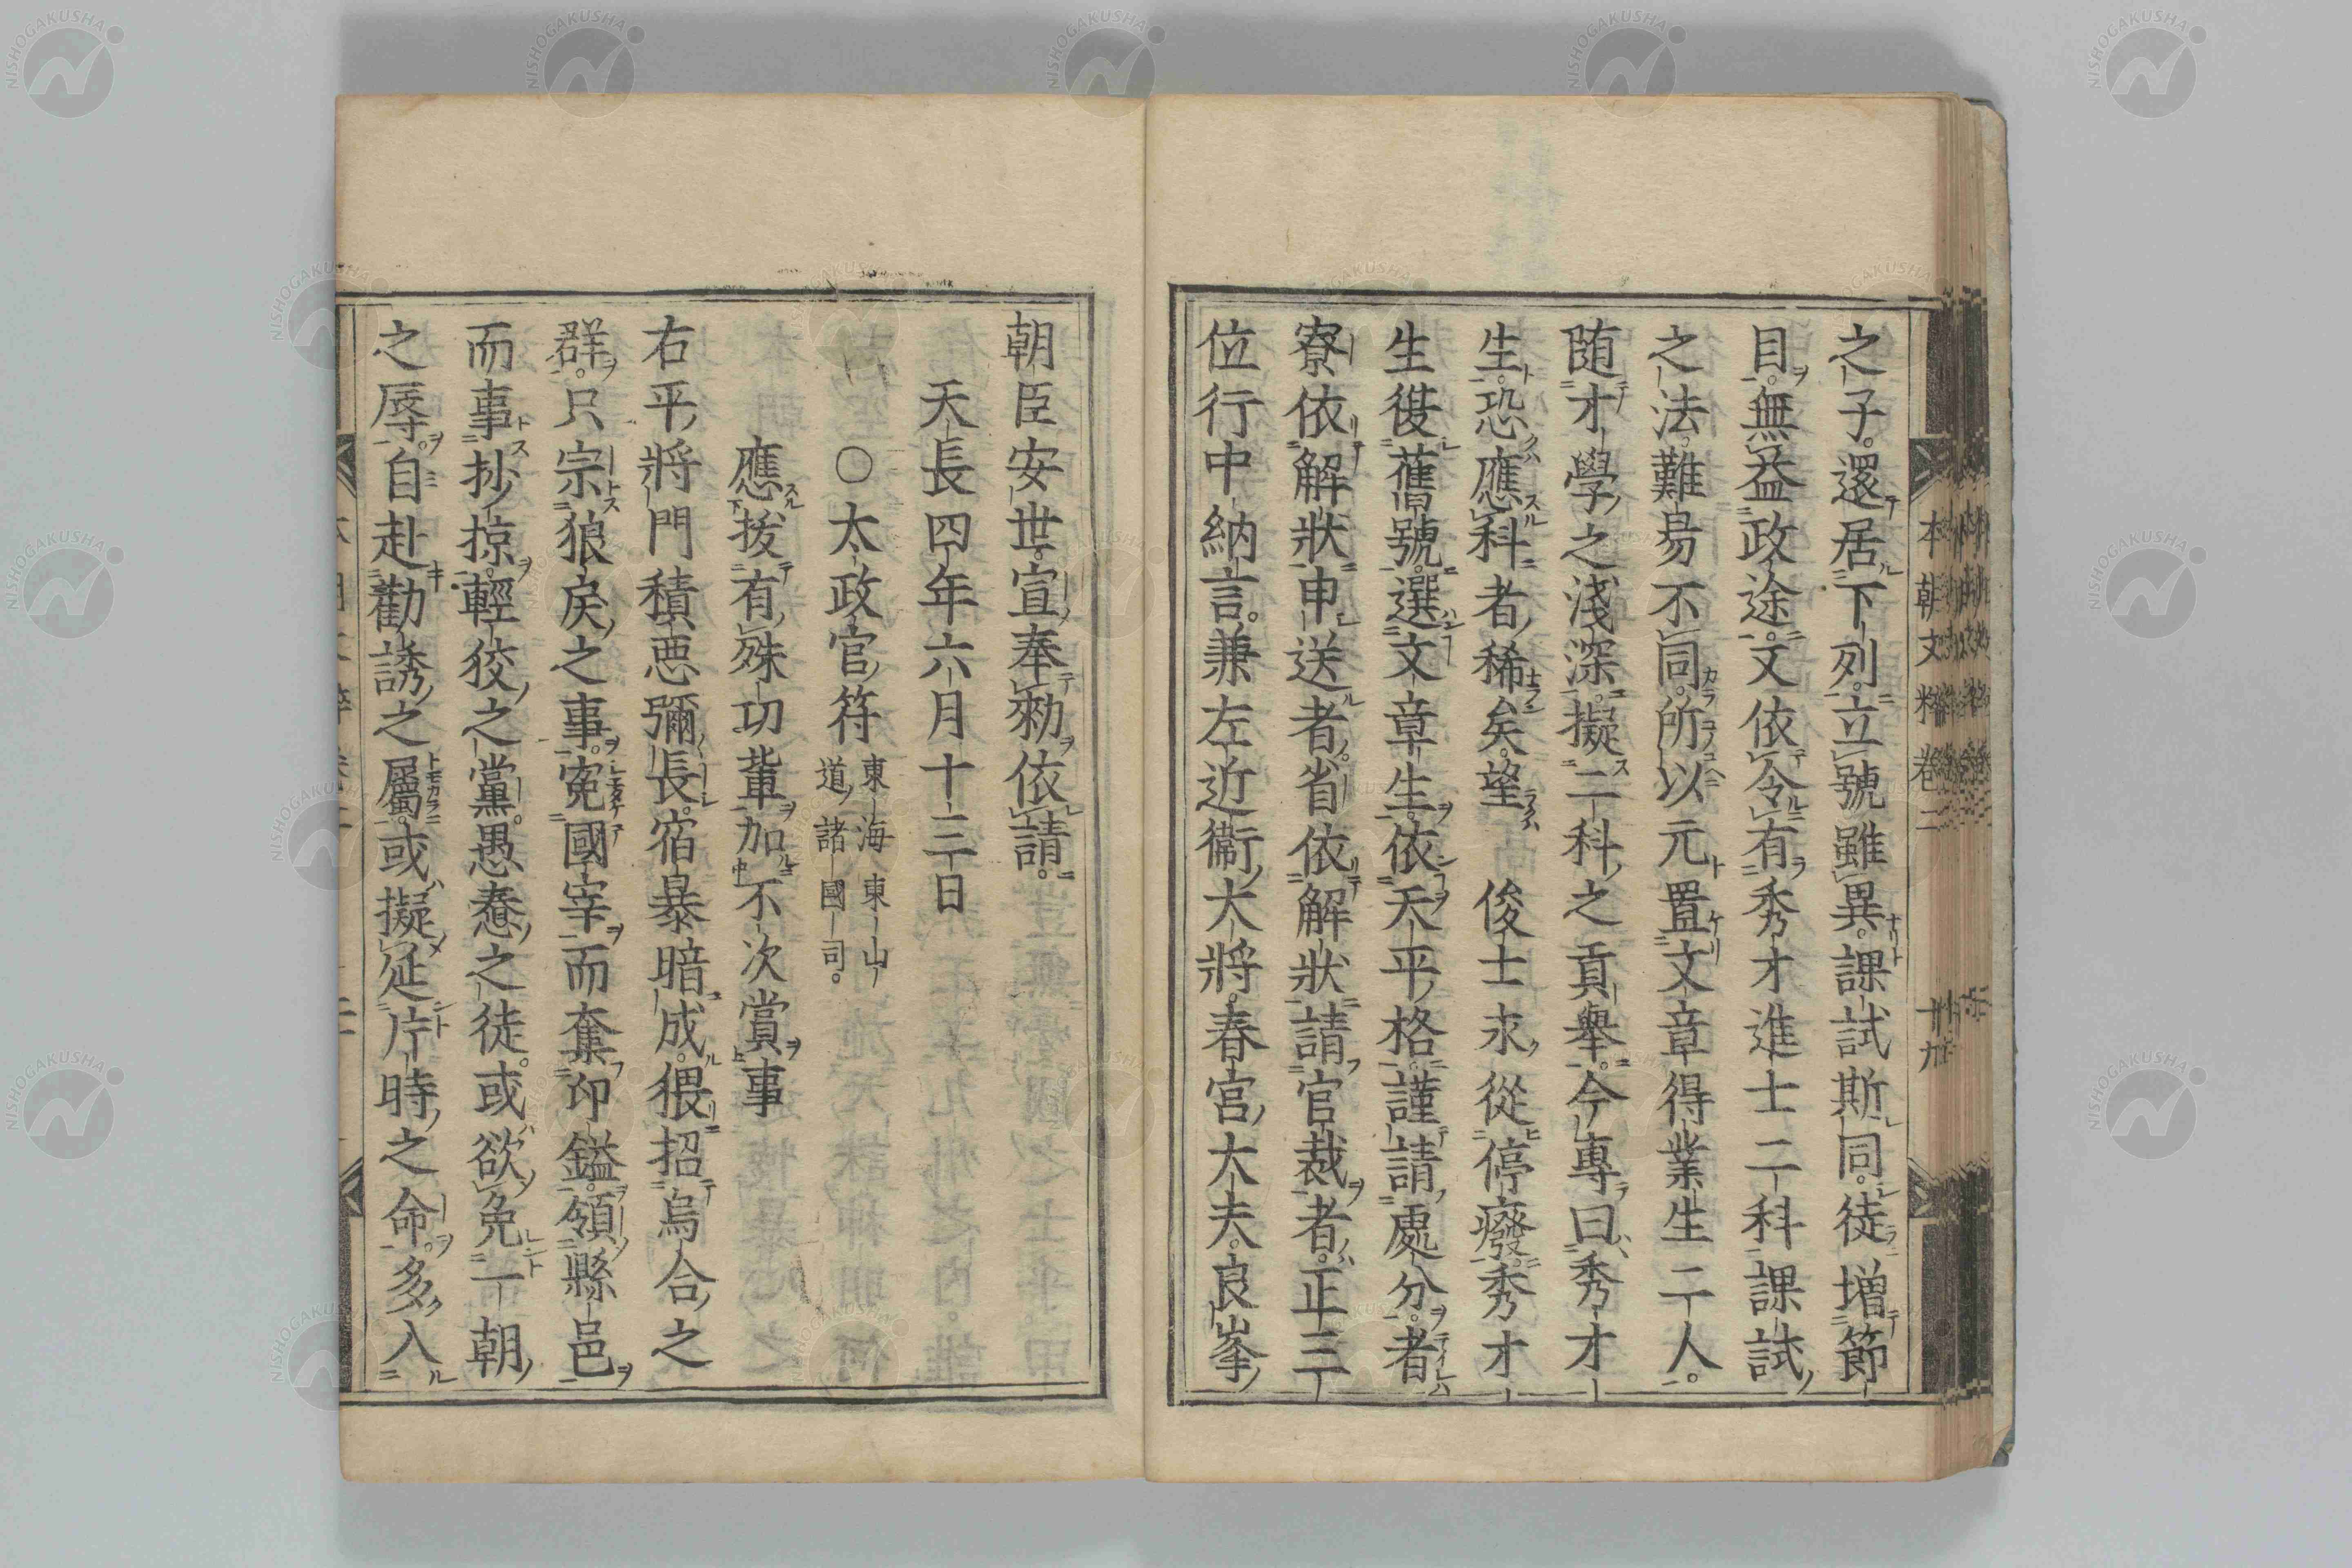 之子。還居下列。立號雖異。課試斯同。徒增節
目。無益政途。文依令有秀才進士二科課試
之法。難易不同。所以元置文章得業生二人。
随才學之淺深。擬二科之貢舉。今專曰秀才
生。恐應科者稀矣。望　俊士永從停癈。秀才
生復舊號。選文章生。依天平格。謹請處分。者
寮依解狀申送者。省依解狀請官裁者。正三
位行中納言。兼左近衞大將。春宮大夫。良峯
朝臣安世。宣奉勑依請。
天長四年六月十三日
〇太政官符 東海東山道諸國司。
應拔有殊功輩加不次賞事
右平將門積悪彌長。宿暴暗成。猥招烏合之
群。只宗狼戾之事。寃國宰而奪印鎰。領縣邑
而事抄掠。輕狡之黨。愚惷之徒。或欲免一朝
之辱。自赴勸誘之屬。或擬延片時之命。多入
本朝文粹卷二
卅九